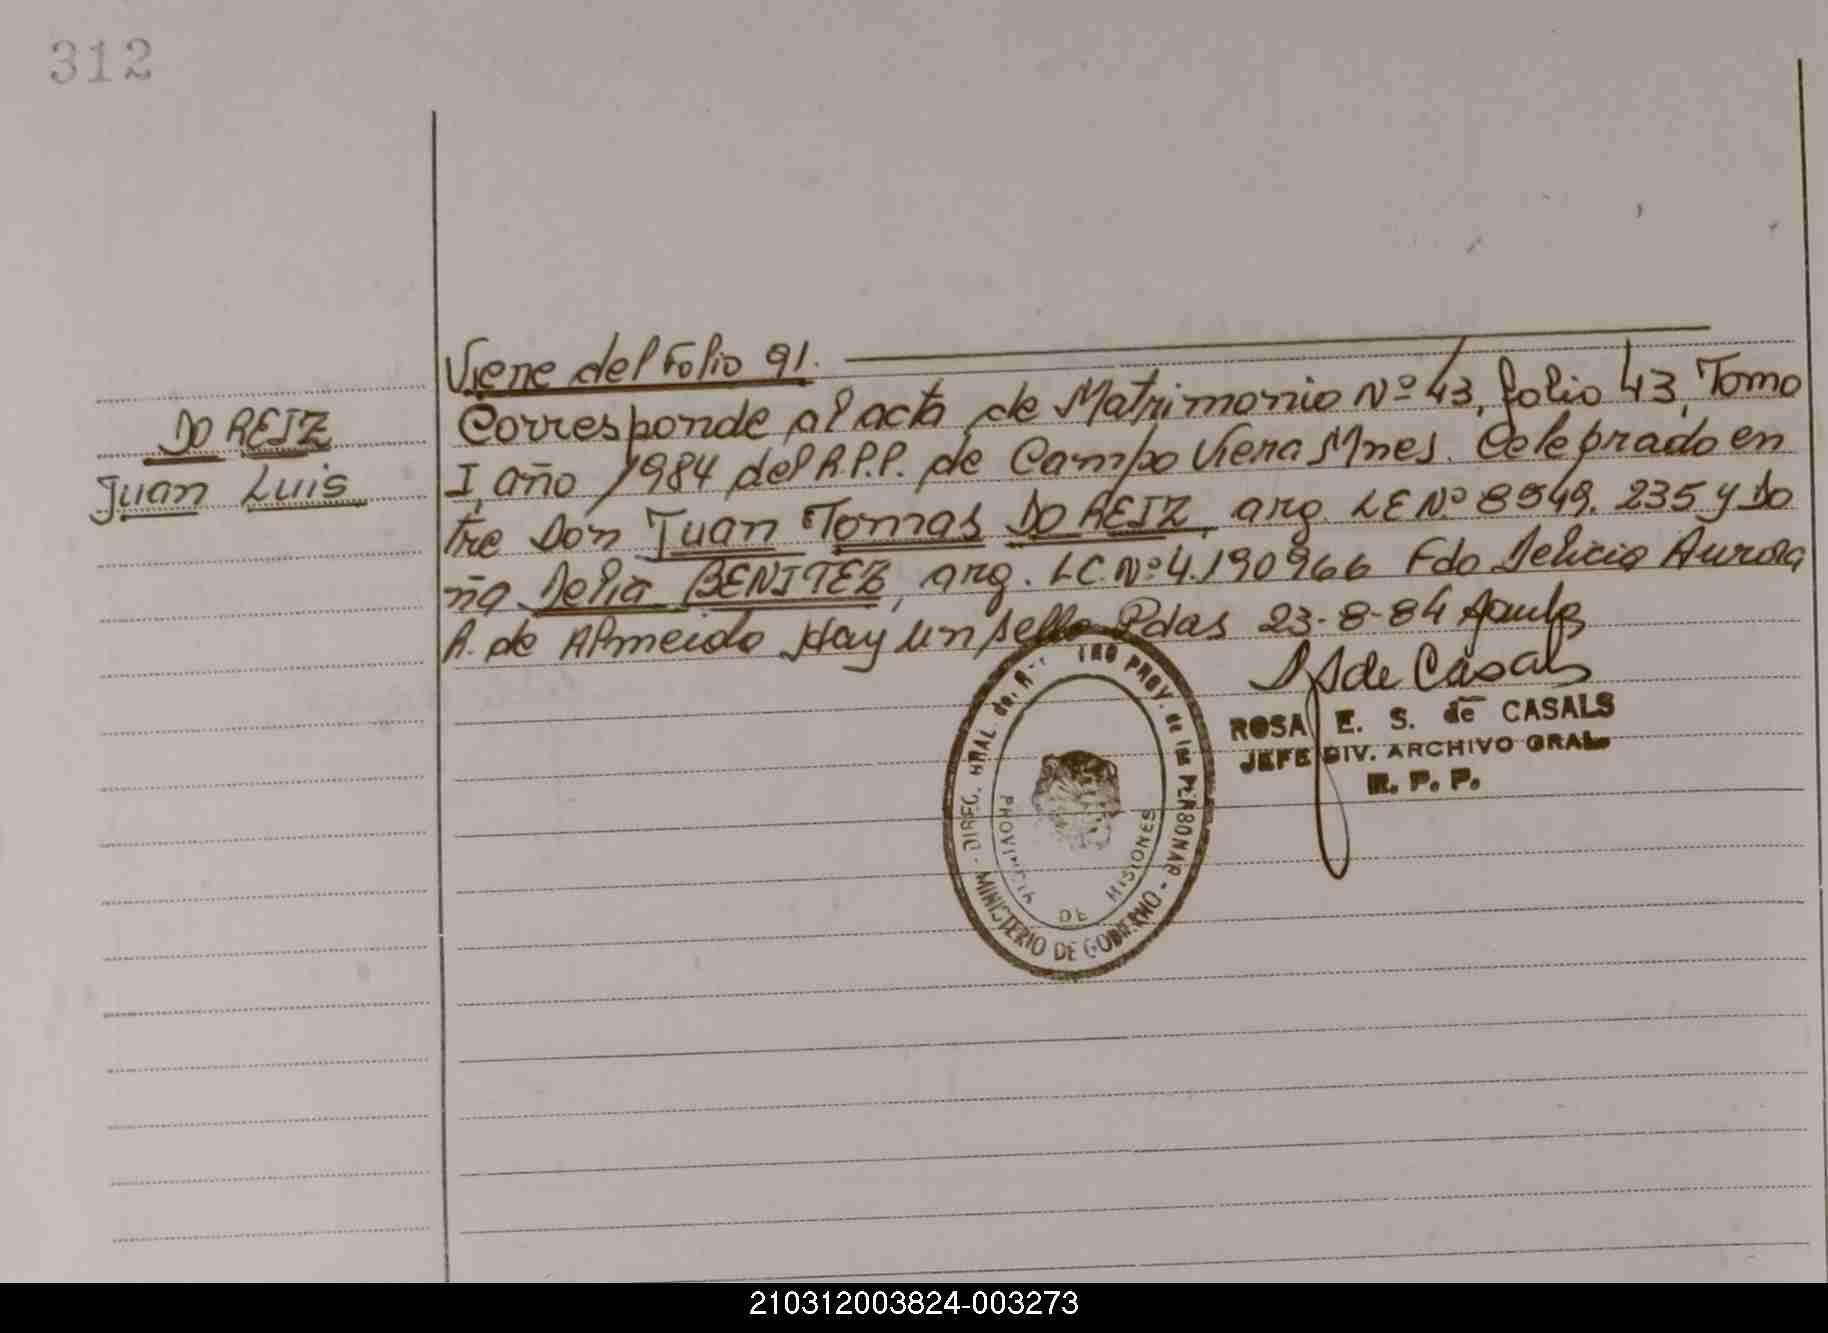 312
Viene del Folio 91.
Corresponde al acta de Matrimonio Nº 43, folio 43, Tomo
DO REIZ
I, año 1984 del R.P.P. de Campo Viera Mnes. Celebrado en
Juan Luis
tre Don Juan Tomas DO REIZ, arg. LE Nº 8549.235 y Do
ña Delia BENITEZ, arg. LC. Nº 4.190966 Fdo Delicia Aurora
R. de Almeido Hay un sello Pdas 23-8-84
de Casals
ROSA E. S. de CASALS
JEFE DIV. ARCHIVO GRAL.
R. P. P.
DIREC. GRAL. del PROV. de las PERSONAS
MINISTERIO DE GOBIERNO
PROVINCIA DE MISIONES
210312003824-003273